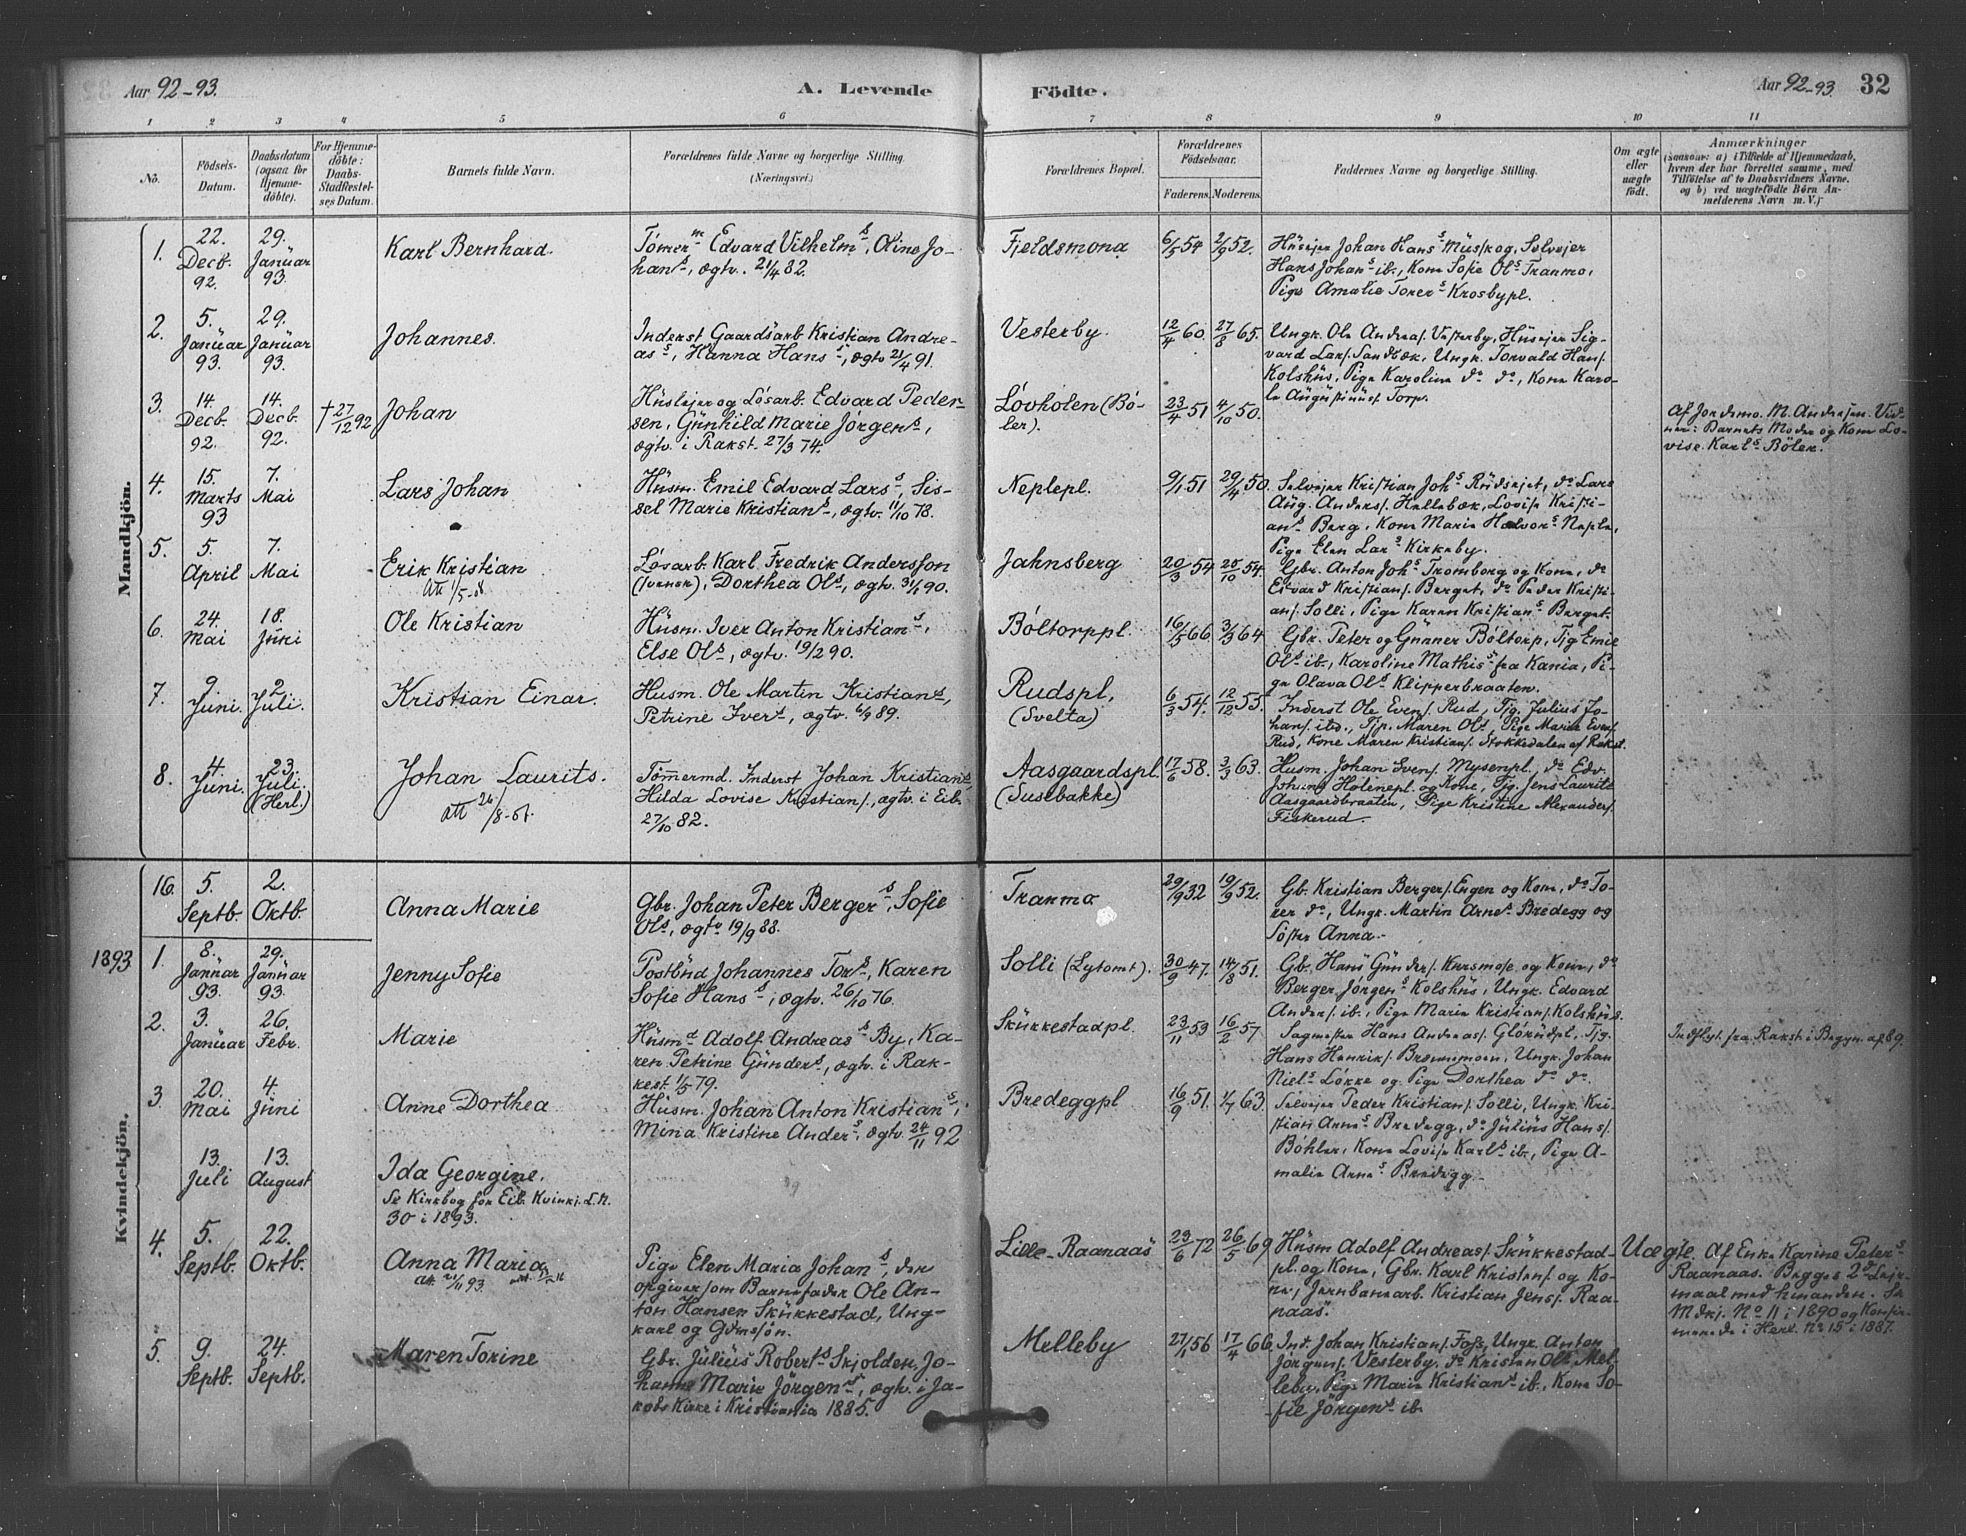 Aar 92-93.
A. Levende
Födte.
Aar 92-93. 32
1 2 3 4 5 6 7 8 9 10 11
No.
Födsels-
Datum.
Daabsdatum
(ogsaa for
Hjemme-
döbte).
For Hjemme-
döbte:
Daabs-
Stadfæstel-
ses Datum.
Barnets fulde Navn.
Forældrenes fulde Navne og borgerlige Stilling.
(Næringsvei.)
Forældrenes Bopæl.
Forældrenes
Födselsaar.
Faderens. Moderens.
Faddernes Navne og borgerlige Stilling.
Om ægte
eller
uægte
födt.
Anmærkninger
(saasom: a) i Tilfælde af Hjemmedaab,
hvem der har forrettet samme, med
Tilföielse af to Daabsvidners Navne.
og b) ved uægtefödte Börn An-
melderens Navn m. V.)
Mandkjön.
1.
22.
Decb.
92.
29.
Januar
93.
Karl Bernhard.
Tömerm Edvard Vilhelms, Oline Jo-
hans, ægtv. 21/4 82.
Fjeldsmona
6/5 54 2/9 52.
Husejer Johan Hans Müskog, Selvejer
Hans Johans ib., Kone Sofie Ols Tranmo,
Pige Amalie Torers Krosbypl.
2.
5.
Januar
93.
29.
Januar
93.
Johannes.
Inderst Gaardsarb. Kristian Andre-
as, Hanna Hans, ægtv 21/4 91.
Vesterby.
12/4 60. 27/8 65.
Ungk. Ole Andreas Vesterby, Husejer Sig-
vard Lars. Sandbæk, Ungk. Torvald Hans.
Kolshüs, Pige Karoline do do, Kone Karo-
le Augustinus. Torp.
3.
14.
Decb.
92.
14.
Decb.
92.
† 27/12 92
Johan
Huslejer og Lösarb. Edvard Peder-
sen, Günhild Marie Jörgens,
ægtv. i Rakst. 27/3 74.
Lövholen (Bö-
ler).
23/4 51 4/10 50.
Af Jordemo. M. Andersen. Vid-
ner: Barnets Moder og Kone Lo-
vise Karls Böler.
4.
15.
Marts
93
7.
Mai
Lars Johan
Hüsm. Emil Edvard Lars, Sis-
sel Marie Kristians, ægtv. 11/10 78.
Neplepl.
9/1 51 29/4 50.
Selvejer Kristian Johs Rüdsejet, do Lars
Aug. Anders. Hellebæk, Lovise Kristi-
ans Berg, Kone Marie Halvors Neple,
Pige Elen Lars Kirkeby.
5.
5.
April
7.
Mai
Erik Kristian
Att 1/5-08
Lösarb. Karl Fredrik Andersson
(svensk), Dorthea Ols, ægtv. 31/1 90.
Jahnsberg
20/3 54 25/10 54.
Gbr. Anton Johs Tromborg og Kone, do
Edvard Kristians. Berget, do Peder Kristi-
ans. Solli, Pige Karen Kristians Berget.
6.
24.
Mai
18.
Juni
Ole Kristian
Hüsm. Iver Anton Kristians,
Else Ols, ægtv. 19/2 90.
Böltorppl.
16/5 66 3/3 64
Gbr. Peter og Günner Böltorp, Tjg Emil
Ols ib., Karoline Mathis fra Kania, Pi-
ge Olava Ols Klipperbraaten.
7.
9
Juni.
2
Juli.
Kristian Einar.
Husm. Ole Martin Kristians,
Petrine Ivers, ægtv. 6/9 89.
Rudspl,
(Svelta)
6/3 54. 12/12 53.
Inderst Ole Evens Rud, Tjg. Julius Jo-
hans. ibd., Tjp. Maren Ols, Pige Marie Evens.
Rud, Kone Maren Kristians. Stokkedalen af Rakst.
8.
4
Juni.
23.
Juli.
(Herl.)
Johan Laurits.
Att 26/8-08.
Tömermd. Inderst Johan Kristians,
Hilda Lovise Kristians., ægtv. i Eib.
27/10 82.
Aasgaardspl.
(Susebakke)
17/6 58. 3/3 63.
Husm. Johan Svens. Mysenpl., do Edv.
Holenepl. og Kone, Tjg. Jens Laurits
Aasgaardbraaten, Pige Kristine Alexanders.
Fiskerud.
Kvindekjön.
16.
5.
Septb.
2.
Oktb.
Anna Marie
Gbr. Johan Peter Bergers, Sofie
Ols, ægtv 19/9 88.
Tranmo
29/9 32 19/9 52.
Gb. Kristian Bergers. Engen og Kone, do To-
rer do, Ungk. Martin Arnes Bredegg og
Söster Anna.
1893 1.
8.
Januar
93.
29.
Januar
93.
Jenny Sofie
Postbüd Johannes Tors, Karen
Sofie Hans, ægtv. 26/10 76.
Solli (Lytomt).
30/9 47. 14/8 51.
Gb. Hans Günders. Kursmose og Kone, do
Berger Jörgens Kolshüs, Ungk. Edvard
Anders. ib., Pige Marie Kristians. Kolshüs.
2.
3.
Januar
26.
Febr.
Marie
Hüsmd Adolf Andreas By, Ka-
ren Petrine Günders, ægtv. i Rak-
kest. 1/5 79.
Skükkestadpl.
23/11 53 16/2 57
Sagmester Hans Andreas. Glörüdpl., Tjg.
Hans Henriks. Brennemoen, Ungk. Johan
Niels Løkke og Pige Dorthea do do.
Indflyt. fra Rakst. i Begyn. af 89.
3.
20.
Mai
4.
Juni
Anne Dorthea
Hüsm. Johan Anton Kristians,
Mina Kristine Anders, ægtv. 24/11 92
Bredeggpl
16/9 51. 1/7 63.
Selvejer Peder Kristians. Solli, Ungk. Kri-
stian Arnes Bredegg, do Jülius Hans.
Böhler, Kone Lovise Karls ib., Pige A-
malie Arnes Bredegg.
13.
Juli
13.
August
Ida Georgine.
Se Kirkbog for Eib. Kvinkj. L.N.
30 i 1893.
4.
5.
Septb.
22.
Oktb.
Anna Maria
att. 21/11 93.
Pige Elen Maria Johans, der
opgiver som Barnefader Ole An-
ton Hansen Skükkestad, Ung-
karl og Gdmssön.
Lille-Raanaas
23/6 72 26/5 69
Hüsm Adolf Andreas. Skükkestad-
pl. og Kone, Gbr. Karl Kristens. og Ko-
ne, Jernbanearb. Kristian Jens. Raa-
naas.
Uægte.
Af Enke Karine Peters
Raanaas. Begges 2d Lejr-
maal med hinanden. Se
Mdkj. No 11 i 1890 og Konfir-
merede i Herl. No 15 i 1887.
5.
9.
Septb.
24.
Septb.
Maren Torine
Gbr. Jülius Roberts Skjolden, Jo-
hanne Marie Jörgens, ægtv. i Ja-
kobs Kirke i Kristiania 1885.
Melleby
27/1 56 17/4 66
Ind. Johan Kristians. Foss, Ungk. Anton
Jörgens. Vesterby, do Kristen Ols Mel-
leby, Pige Marie Kristians ib., Kone So-
fie Jörgens ib.